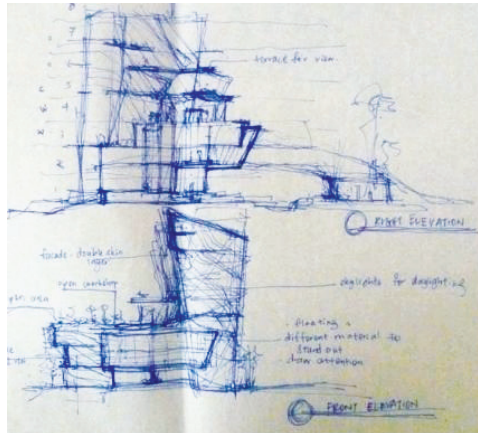 8
7
6
5
4
3
2
1
terrace for view
RIGHT ELEVATION
facade - double skin
layer
open workshop
skylights for daylighting
- floating &
different material to
stand out
draw attention
FRONT ELEVATION